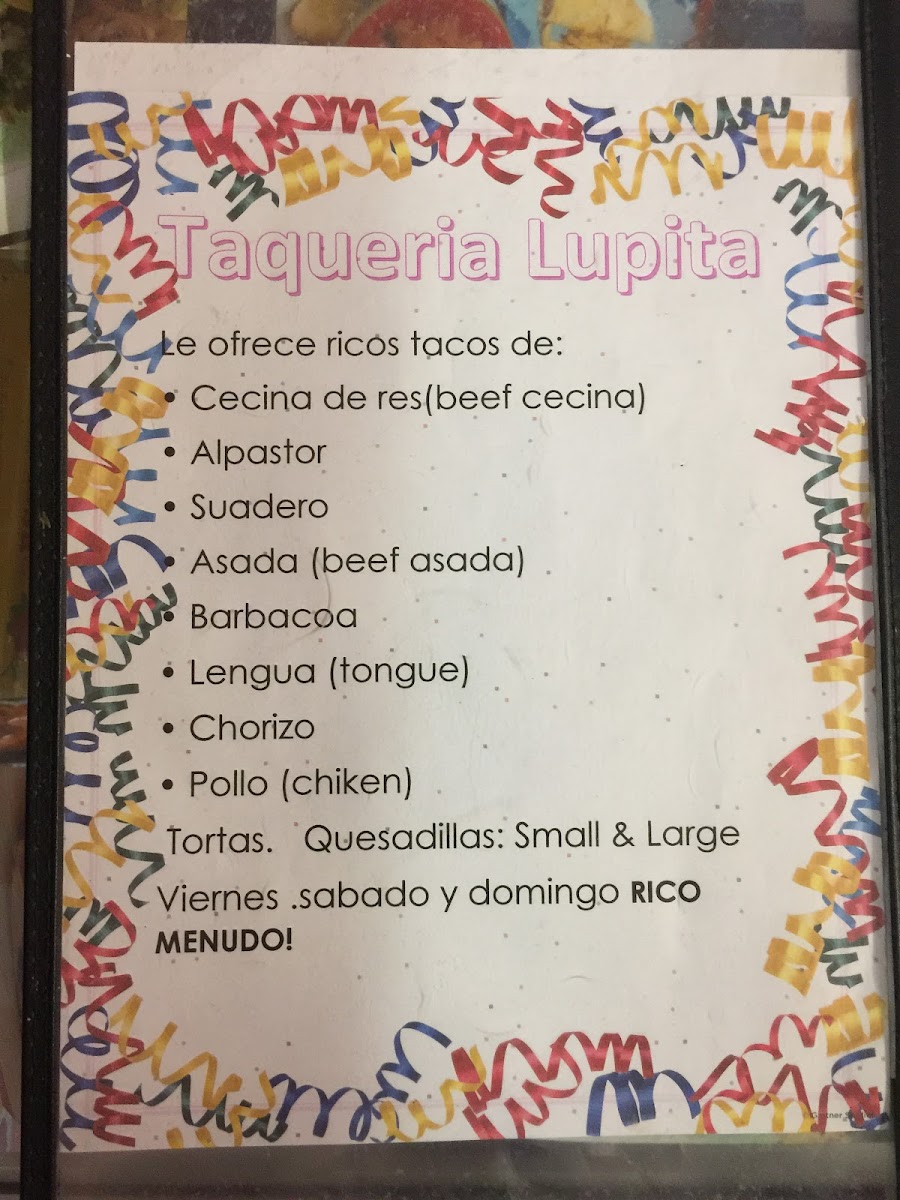 Taqueria Lupita
Le ofrece ricos tacos de:
• Cecina de res(beef cecina)
• Alpastor
• Suadero
• Asada (beef asada)
• Barbacoa
• Lengua (tongue)
• Chorizo
• Pollo (chiken)
Tortas. Quesadillas: Small & Large
Viernes .sabado y domingo RICO
MENUDO!